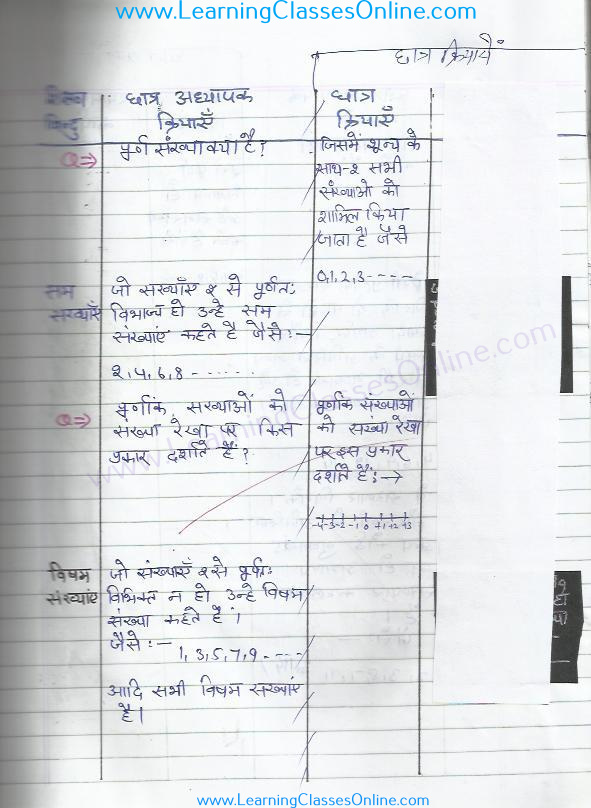 www.LearningClassesOnline.com
छात्र क्रियायें
शिक्षण छात्र अध्यापक छात्र
बिन्दु क्रियाएँ क्रियाएँ
Q⇒ पूर्ण संख्या क्या है?
जिसमें शून्य के
साथ-२ सभी
संख्याओ को
शामिल किया
जाता है जैसे
0,1,2,3- - - -
सम जो संख्याएँ २ से पूर्णतः
संख्याएँ विभाज्य हो उन्हे सम
संख्याएं कहते है जैसे:-
२,4,6,8 - - - - - -
Q⇒ पूर्णांक संख्याओं को
संख्या रेखा पर किस
प्रकार दर्शाते है?
पूर्णांक संख्याओं
को संख्या रेखा
पर इस प्रकार
दर्शाते है:→
-4 -3 -2 -1 0 +1 +2 +3
विषम जो संख्याएँ २ से पूर्णतः
संख्याएं विभक्त न हो उन्हे विषम
संख्या कहते है।
जैसे:-
1,3,5,7,9- - - -
आदि सभी विषम संख्याएं
है।
www.LearningClassesOnline.com
www.LearningClassesOnline.com